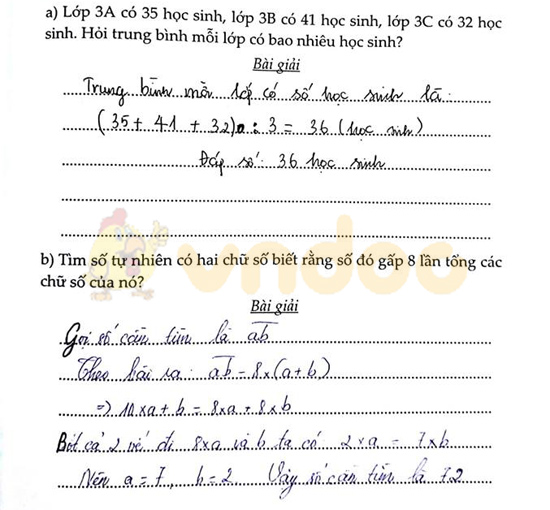 a) Lớp 3A có 35 học sinh, lớp 3B có 41 học sinh, lớp 3C có 32 học
sinh. Hỏi trung bình mỗi lớp có bao nhiêu học sinh?
Bài giải
Trung bình mỗi lớp có số học sinh là:
(35 + 41 + 32) : 3 = 36 (học sinh)
Đáp số: 36 học sinh
vndoc
b) Tìm số tự nhiên có hai chữ số biết rằng số đó gấp 8 lần tổng các
chữ số của nó?
Bài giải
Gọi số cần tìm là ab
Theo bài ra: ab = 8 x (a + b)
=> 10 x a + b = 8 x a + 8 x b
Bớt cả 2 vế đi 8 x a và b ta có 2 x a = 7 x b
Nên a = 7, b = 2 Vậy số cần tìm là 72